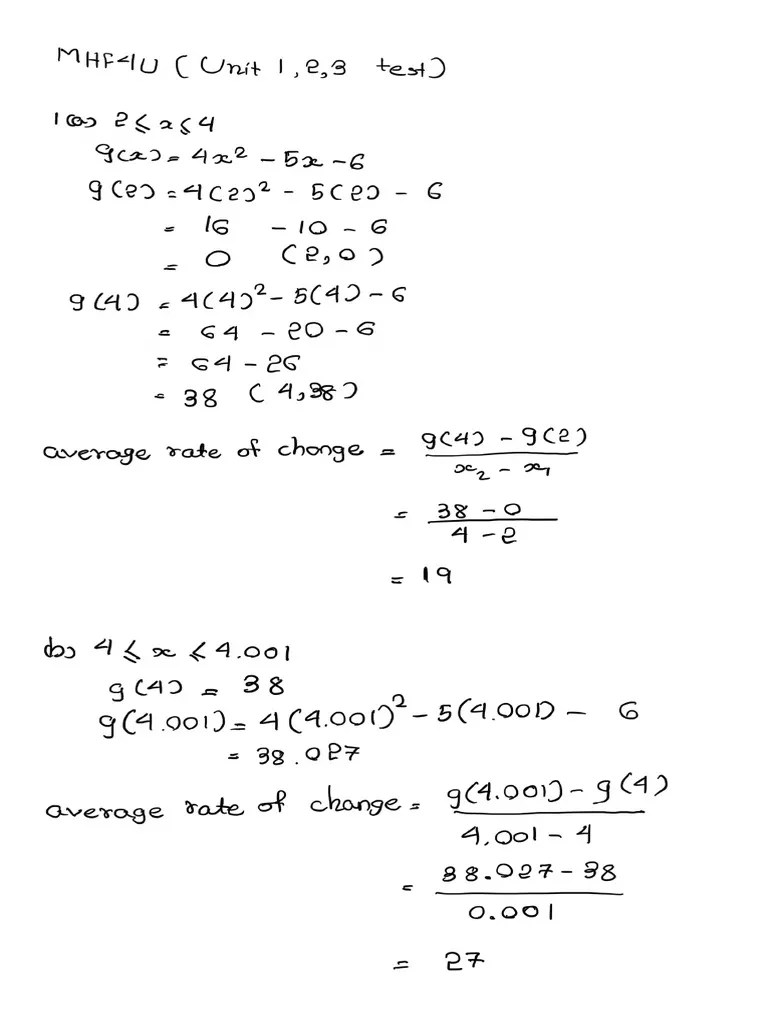 MHF4U (Unit 1,2,3 test)
1(a) 2 ≤ x ≤ 4
g(x) = 4x² - 5x - 6
g(2) = 4(2)² - 5(2) - 6
= 16 - 10 - 6
= 0 (2,0)
g(4) = 4(4)² - 5(4) - 6
= 64 - 20 - 6
= 64 - 26
= 38 (4,38)
average rate of change = g(4) - g(2) / x₂ - x₁
= 38 - 0 / 4 - 2
= 19
(b) 4 ≤ x ≤ 4.001
g(4) = 38
g(4.001) = 4(4.001)² - 5(4.001) - 6
= 38.027
average rate of change = g(4.001) - g(4) / 4.001 - 4
= 38.027 - 38 / 0.001
= 27